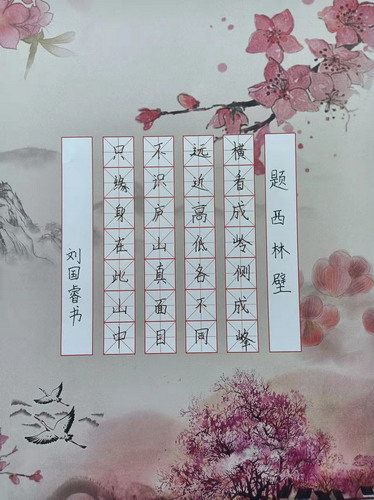 题西林壁
横看成岭侧成峰
远近高低各不同
不识庐山真面目
只缘身在此山中
刘国睿书